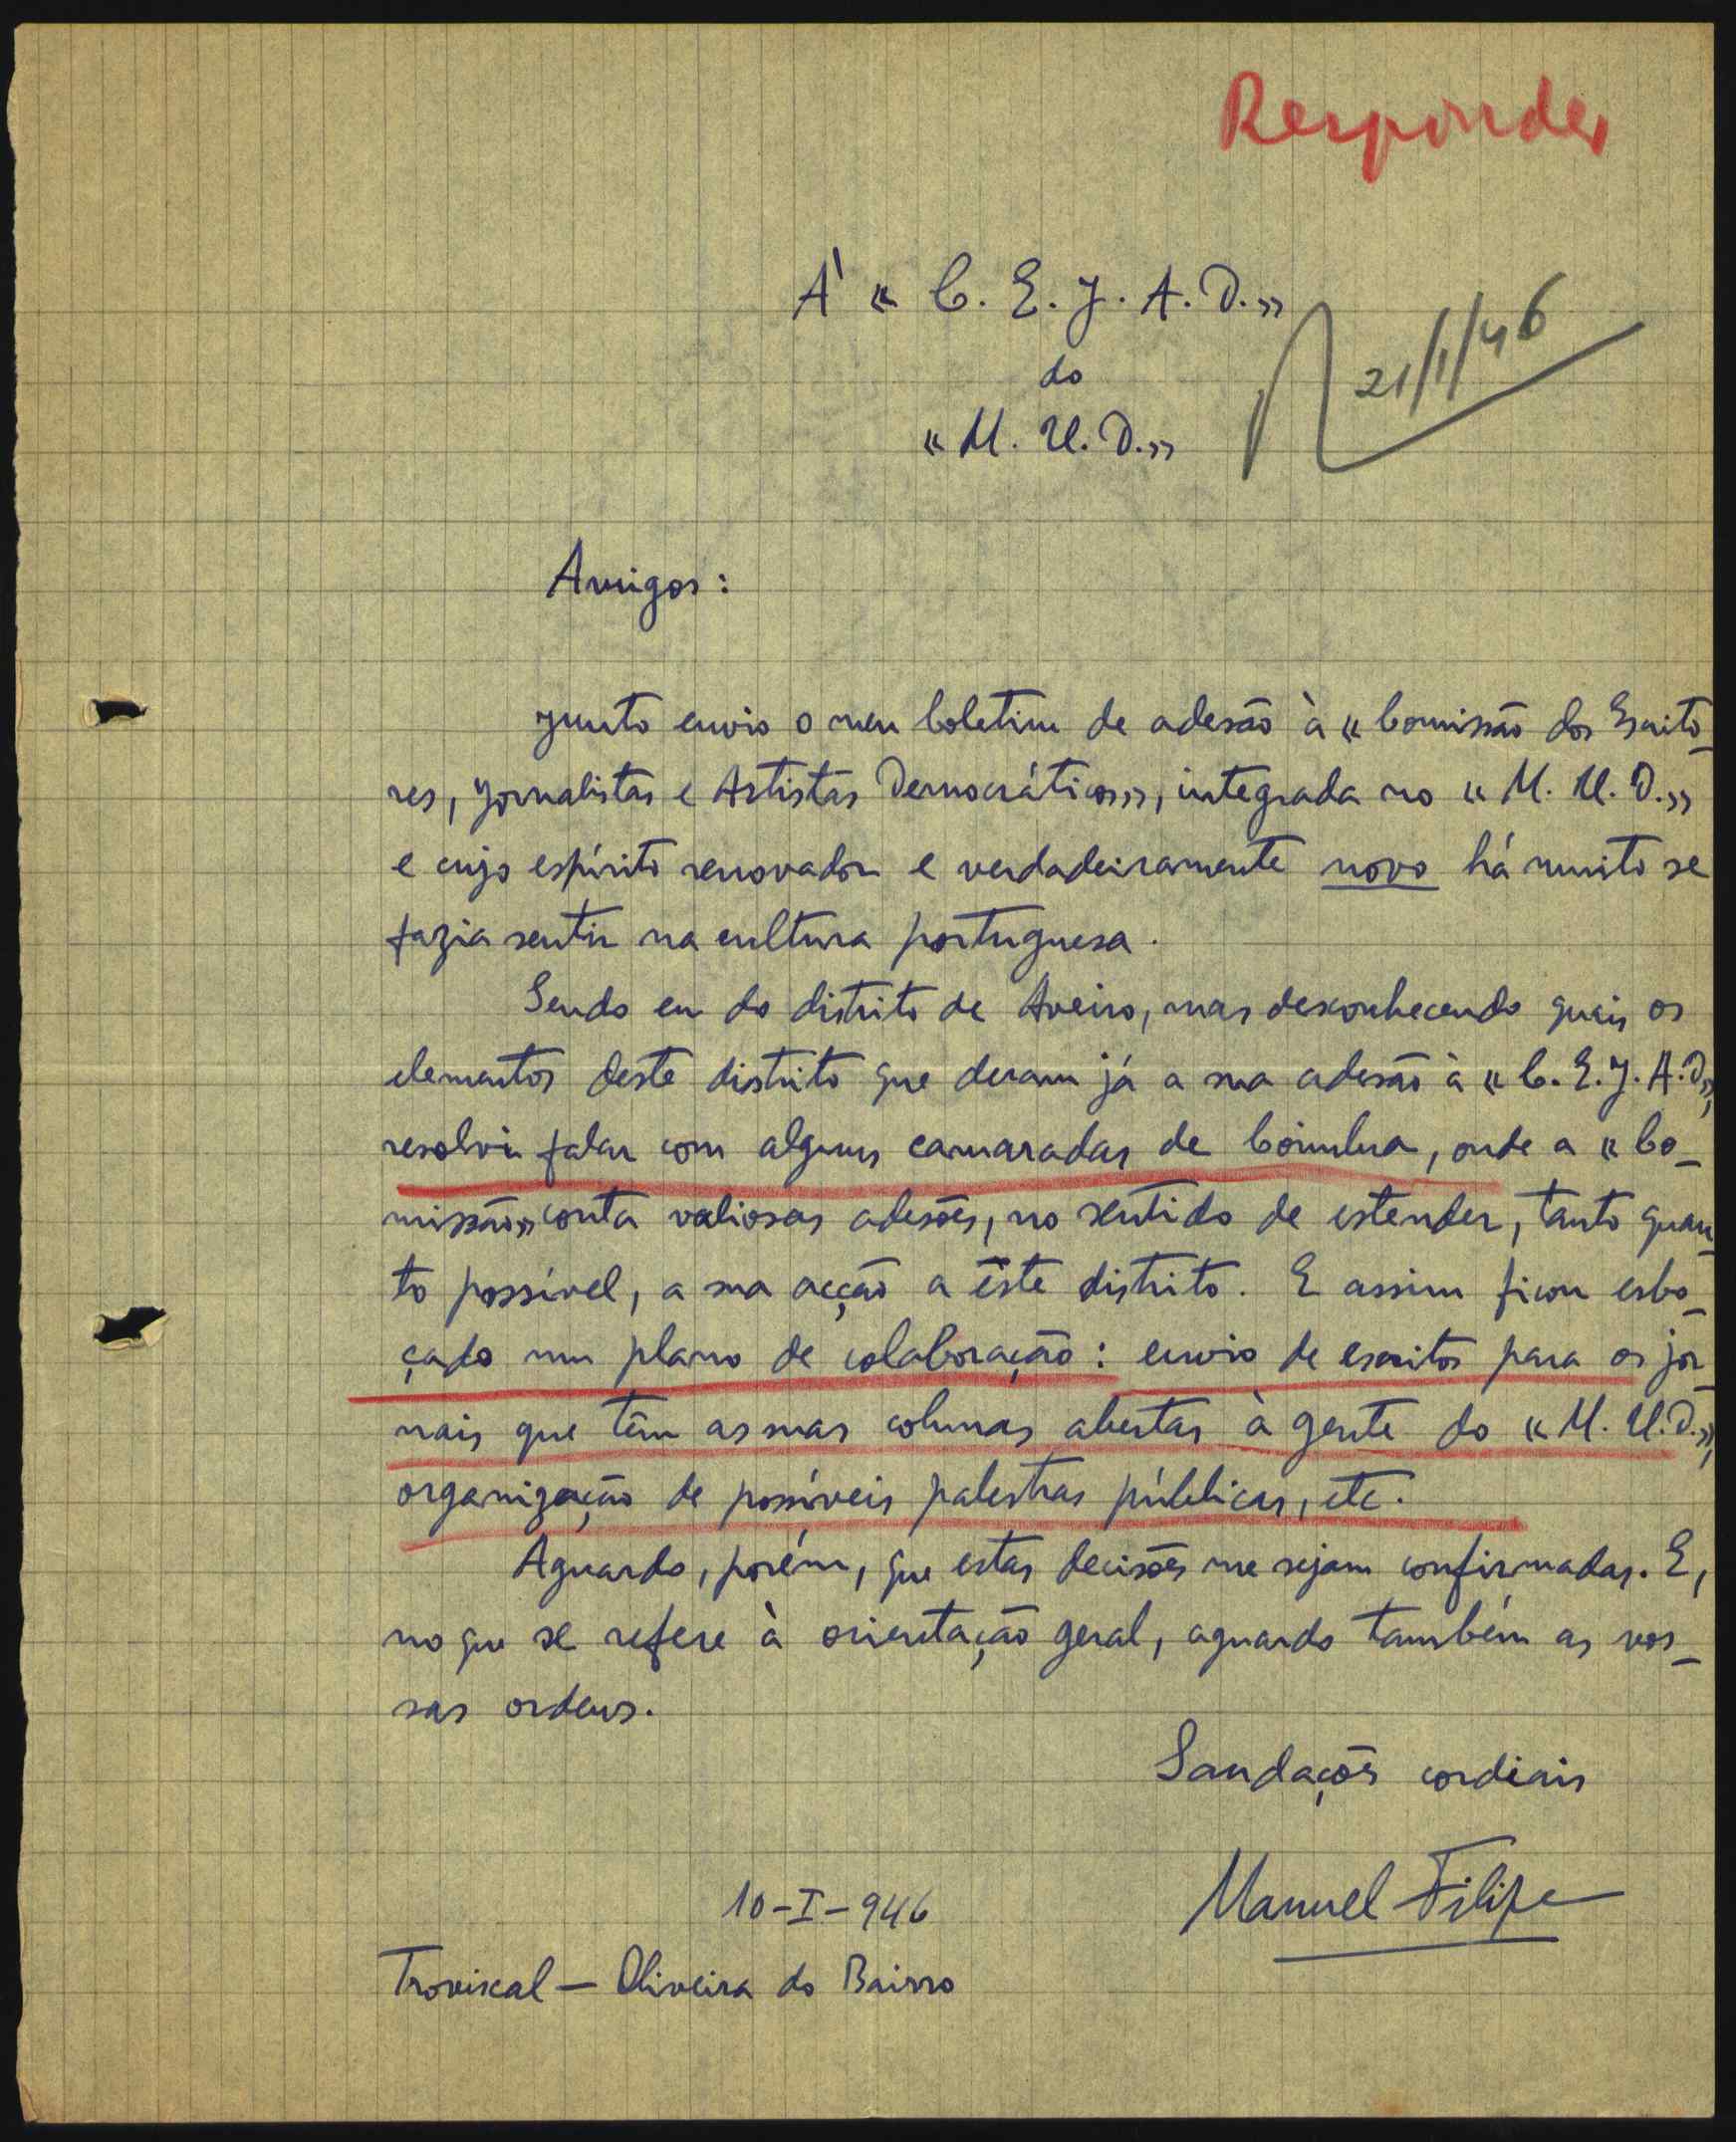 Responder
À « C. E. J. A. D.»
do
« M. U. D.»
R 21/1/46
Amigos:
Junto envio o meu boletim de adesão à « Comissão dos Escrito-
res, Jornalistas e Artistas Democráticos», integrada no « M. U. D.»
e cujo espírito renovador e verdadeiramente novo há muito se
fazia sentir na cultura portuguesa.
Sendo eu do distrito de Aveiro, mas desconhecendo quais os
elementos deste distrito que deram já a sua adesão à « C. E. J. A. D»,
resolvi falar com alguns camaradas de Coimbra, onde a « Co-
missão» conta valiosas adesões, no sentido de estender, tanto quan-
to possível, a sua acção a êste distrito. E assim ficou esbo-
çado um plano de colaboração: envio de escritos para os jor-
nais que têm as suas colunas abertas à gente do « M. U. D.»,
organização de possíveis palestras públicas, etc.
Aguardo, porém, que estas decisões me sejam confirmadas. E,
no que se refere à orientação geral, aguardo também as vos-
sas ordens.
Saudações cordiais
Manuel Filipe
10-I-946
Troviscal — Oliveira do Bairro